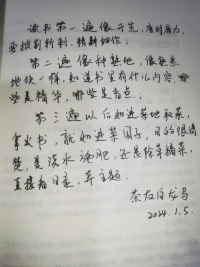 读书第一遍像开荒，费时费力，
要披荆斩棘，精耕细作；
第二遍像种熟地，像熟悉
地块一样，知道书里有什么内容，哪
些是精华，哪些是盲点；
第三遍以后如进菜地取菜，
拿次书，就如进菜园子，目的很清
楚，是浇水施肥，还是除草摘菜，
直接看目录，奔主题。
茶友白龙马
2024.1.5.